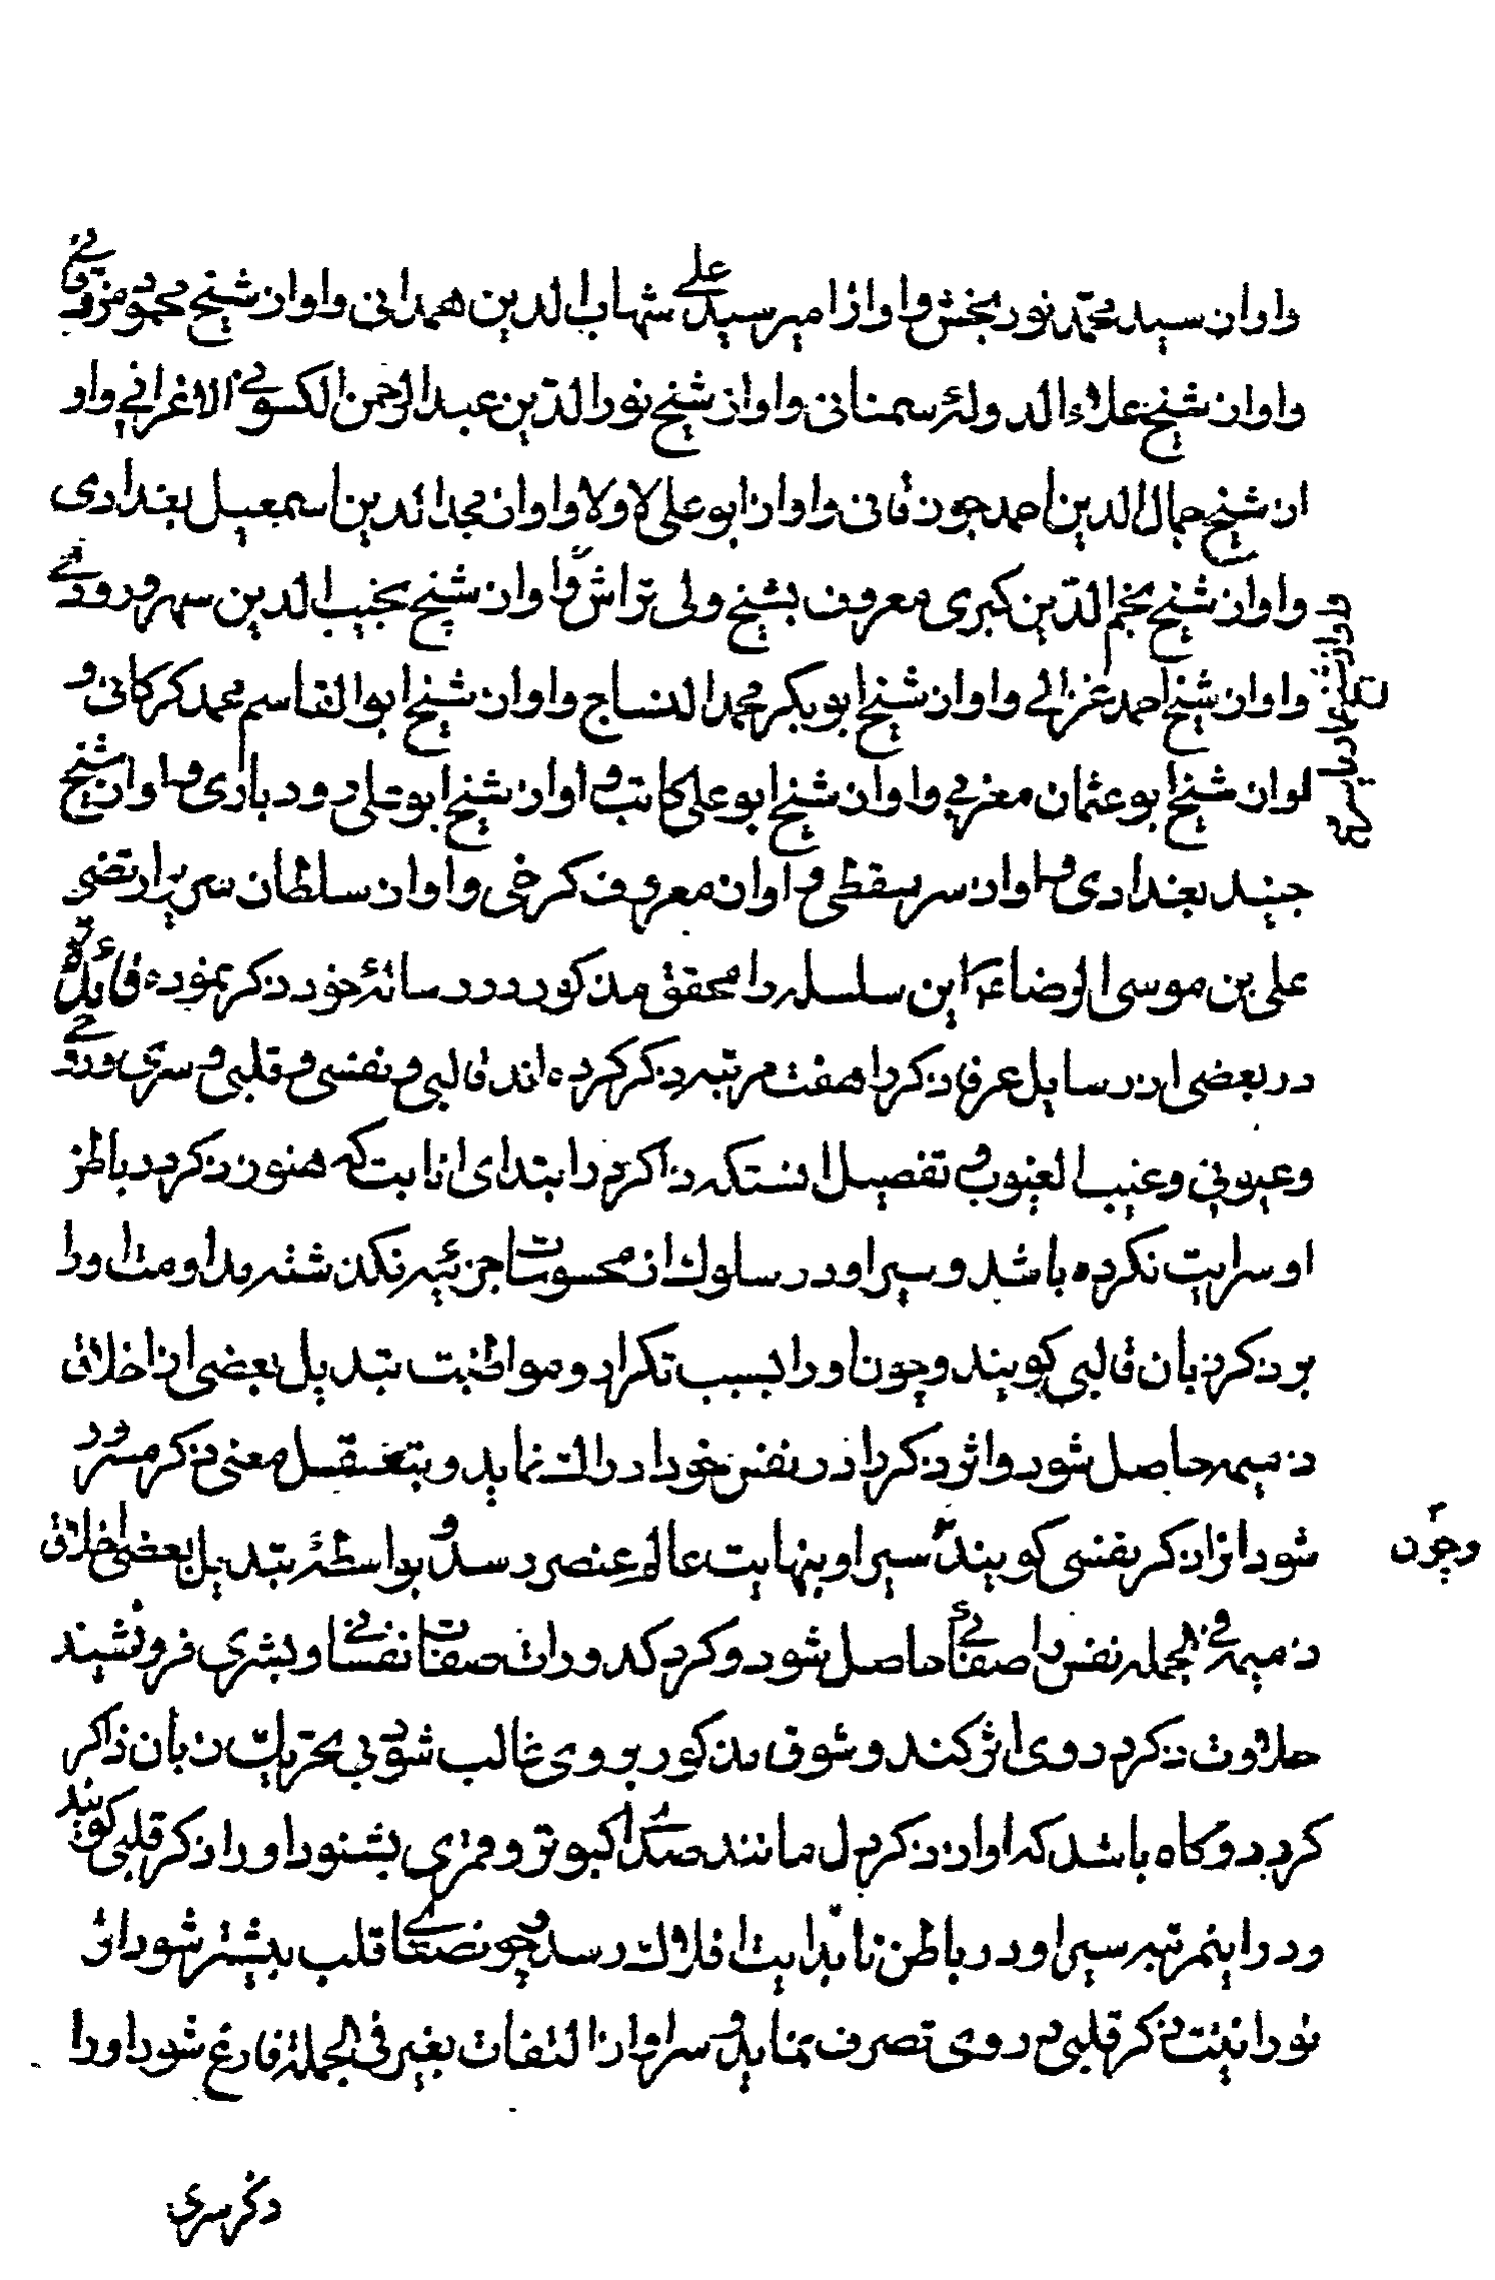 و او از سید محمد نوربخش و او از امیر سید علی شهاب الدین همدانی و او از شیخ محمود مزدقانی
و او از شیخ علاء الدولهٔ سمنانی و او از شیخ نور الدّین عبد الرحمن الکسوفی الاغرانی و او
از شیخ جمال الدین احمد جورفانی و او از ابو علی لاولا و او از مجد الدین اسمعیل بغدادی
و او از شیخ نجم الدّین کبری معروف بشیخ ولی تراش و او از شیخ نجیب الدین سهروردی
و او از شیخ عمار یاسر
و او از شیخ احمد غزالی و او از شیخ ابوبکر محمد النساج و او از شیخ ابوالقاسم محمد کرکانی و
او از شیخ ابو عثمان مغربی و او از شیخ ابو علی کاتب و او از شیخ ابو علی رودباری و او از شیخ
جنید بغدادی و او از سری سقطی و او از معروف کرخی و او از سلطان سریر ارتضی
علی بن موسی الرضا ع م این سلسله را محقق مذکور در رسالهٔ خود ذکر نموده فائدة
در بعضی از رسایل عرفا ذکر را هفت مرتبه ذکر کرده اند قالبی و نفسی و قلبی و سری و روحی
و عیونی و غیب الغیوب و تفصیل انستکه ذاکر در ابتدای انابت که هنوز ذکر در باطن
او سرایت نکرده باشد و سیر او در سلوک از محسوسات جزئیه نکذشته مداومت او را
بر ذکر زبان قالبی کویند و چون او را بسبب تکرار و مواظبت تبدیل بعضی از اخلاق
ذمیمه حاصل شود و اثر ذکر را در نفس خود ادراک نماید و بتعقل معنی ذکر مسرور
شود انرا ذکر نفسی کویند سیر او بنهایت عالم عنصر رسد و بواسطهٔ تبدیل بعضی اخلاق
و چون
ذمیمه فی الجمله نفس را صفائی حاصل شود و کرد کدورات صفات نفسانی و بشری فرونشیند
حلاوت ذکر در وی اثر کند و شوق مذکور بر وی غالب شود بی تحریک زبان ذاکر
کردد و کاه باشد که اواز ذکر دل مانند صدای کبوتر و قمری بشنود او را ذکر قلبی کویند
و در اینمرتبه سیر او در باطن تا بدایت افلاک رسد و چون صفای قلب بیشتر شود اثر
نورانیت ذکر قلبی در وی تصرف نماید و سر او از التفات بغیر فی الجمله فارغ شود او را
ذکر سری